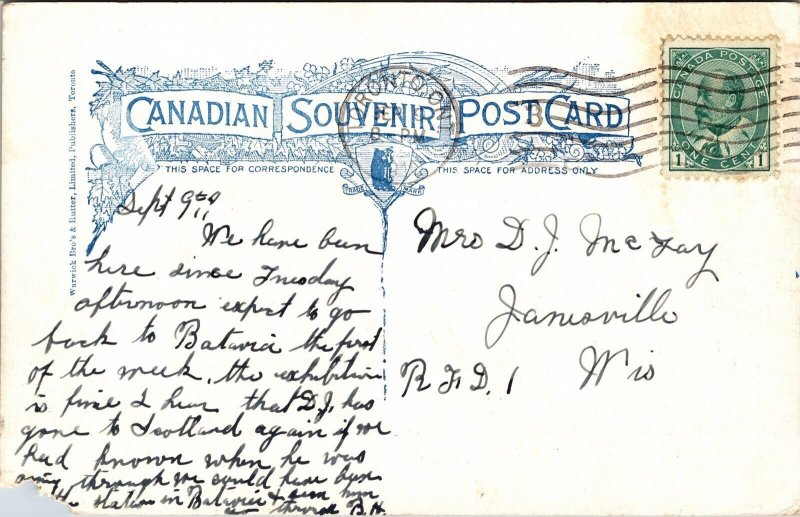 CANADIAN SOUVENIR POST CARD
TORONTO, ONT
8 - PM
CANADA POSTAGE
1 ONE CENT 1
THIS SPACE FOR CORRESPONDENCE
THIS SPACE FOR ADDRESS ONLY
TRADE MARK
Warwick Bro's & Rutter, Limited, Publishers, Toronto
Sept 9th
We have been
here since Tuesday
afternoon expect to go
back to Batavia the first
of the week. the exhibition
is fine I hear that D.J. has
gone to Scotland again if we
had known when he was
going through we could have been
the station in Batavia & seen him
B.H.
Mrs D. J. McKay
Janesville
R.F.D. 1 Wis